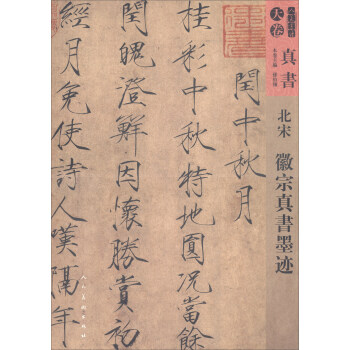 天卷
真書
北宋 徽宗真書墨迹
閏中秋月
桂彩中秋特地圓況當餘
閏魄澄鮮因懷勝賞初
經月免使詩人嘆隔年
人民美術出版社